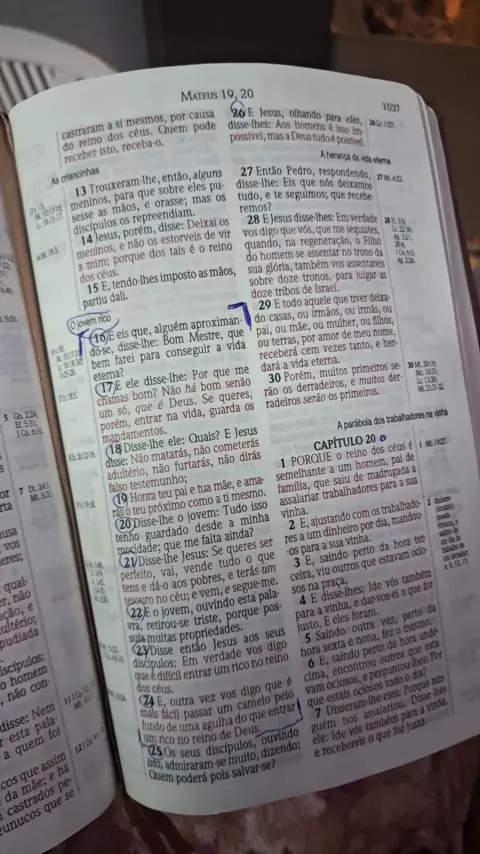 MATEUS 19, 20
1037
castraram a si mesmos, por causa
do reino dos céus. Quem pode
receber isto, receba-o.
As criancinhas
13 Trouxeram-lhe, então, alguns
meninos, para que sobre eles pu-
sesse as mãos, e orasse; mas os
discípulos os repreendiam.
14 Jesus, porém, disse: Deixai os
meninos, e não os estorveis de vir
a mim; porque dos tais é o reino
dos céus.
15 E, tendo-lhes imposto as mãos,
partiu dali.
O jovem rico
16 E eis que, alguém aproximan-
do-se, disse-lhe: Bom Mestre, que
bem farei para conseguir a vida
eterna?
17 E ele disse-lhe: Por que me
chamas bom? Não há bom senão
um só, que é Deus. Se queres,
porém, entrar na vida, guarda os
mandamentos.
18 Disse-lhe ele: Quais? E Jesus
disse: Não matarás, não cometerás
adultério, não furtarás, não dirás
falso testemunho;
19 Honra teu pai e tua mãe, e ama-
rás o teu próximo como a ti mesmo.
20 Disse-lhe o jovem: Tudo isso
tenho guardado desde a minha
mocidade; que me falta ainda?
21 Disse-lhe Jesus: Se queres ser
perfeito, vai, vende tudo o que
tens e dá-o aos pobres, e terás um
tesouro no céu; e vem, e segue-me.
22 E o jovem, ouvindo esta pala-
vra, retirou-se triste, porque pos-
suía muitas propriedades.
23 Disse então Jesus aos seus
discípulos: Em verdade vos digo
que é difícil entrar um rico no reino
dos céus.
24 E, outra vez vos digo que é
mais fácil passar um camelo pelo
fundo de uma agulha do que entrar
um rico no reino de Deus.
25 Os seus discípulos, ouvindo
isto, admiraram-se muito, dizendo:
Quem poderá pois salvar-se?
26 E Jesus, olhando para eles,
disse-lhes: Aos homens é isso im-
possível, mas a Deus tudo é possível.
A herança da vida eterna
27 Então Pedro, respondendo,
disse-lhe: Eis que nós deixamos
tudo, e te seguimos; que recebe-
remos?
28 E Jesus disse-lhes: Em verdade
vos digo que vós, que me seguistes,
quando, na regeneração, o Filho
do homem se assentar no trono da
sua glória, também vos assentareis
sobre doze tronos, para julgar as
doze tribos de Israel.
29 E todo aquele que tiver deixa-
do casas, ou irmãos, ou irmãs, ou
pai, ou mãe, ou mulher, ou filhos,
ou terras, por amor de meu nome,
receberá cem vezes tanto, e her-
dará a vida eterna.
30 Porém, muitos primeiros se-
rão os derradeiros, e muitos der-
radeiros serão os primeiros.
A parábola dos trabalhadores na vinha
CAPÍTULO 20
1 PORQUE o reino dos céus é
semelhante a um homem, pai de
família, que saiu de madrugada a
assalariar trabalhadores para a sua
vinha.
2 E, ajustando com os trabalhado-
res a um dinheiro por dia, mandou-
-os para a sua vinha.
3 E, saindo perto da hora ter-
ceira, viu outros que estavam ocio-
sos na praça,
4 E disse-lhes: Ide vós também
para a vinha, e dar-vos-ei o que for
justo. E eles foram.
5 Saindo outra vez, perto da
hora sexta e nona, fez o mesmo.
6 E, saindo perto da hora undé-
cima, encontrou outros que esta-
vam ociosos, e perguntou-lhes: Por
que estais ociosos todo o dia?
7 Disseram-lhe eles: Porque nin-
guém nos assalariou. Disse-lhes
ele: Ide vós também para a vinha,
e recebereis o que for justo.